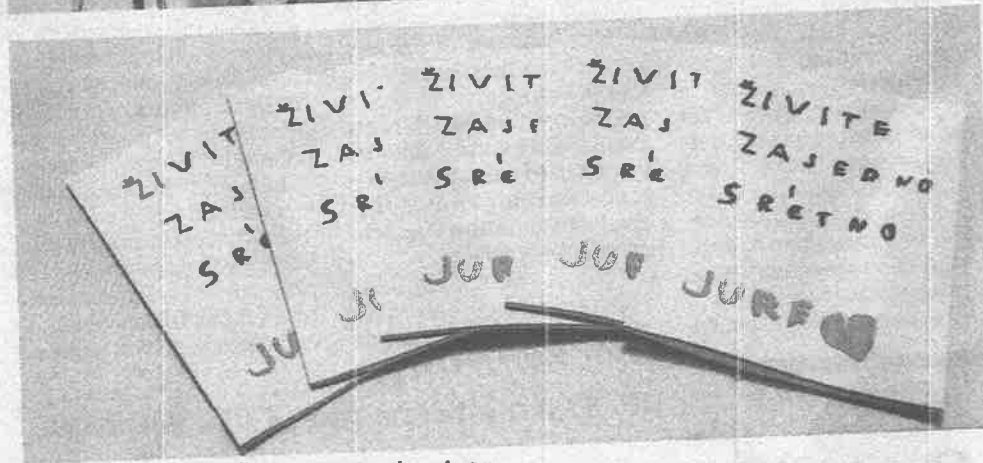 ŽIVIT
ZAJ
SRE
JU
ŽIVI
ZAJ
SR
JU
ŽIVIT
ZAJE
SRE
JUR
ŽIVIT
ZAJ
SRE
JUR
ŽIVITE
ZAJEDNO
SRETNO
JURE